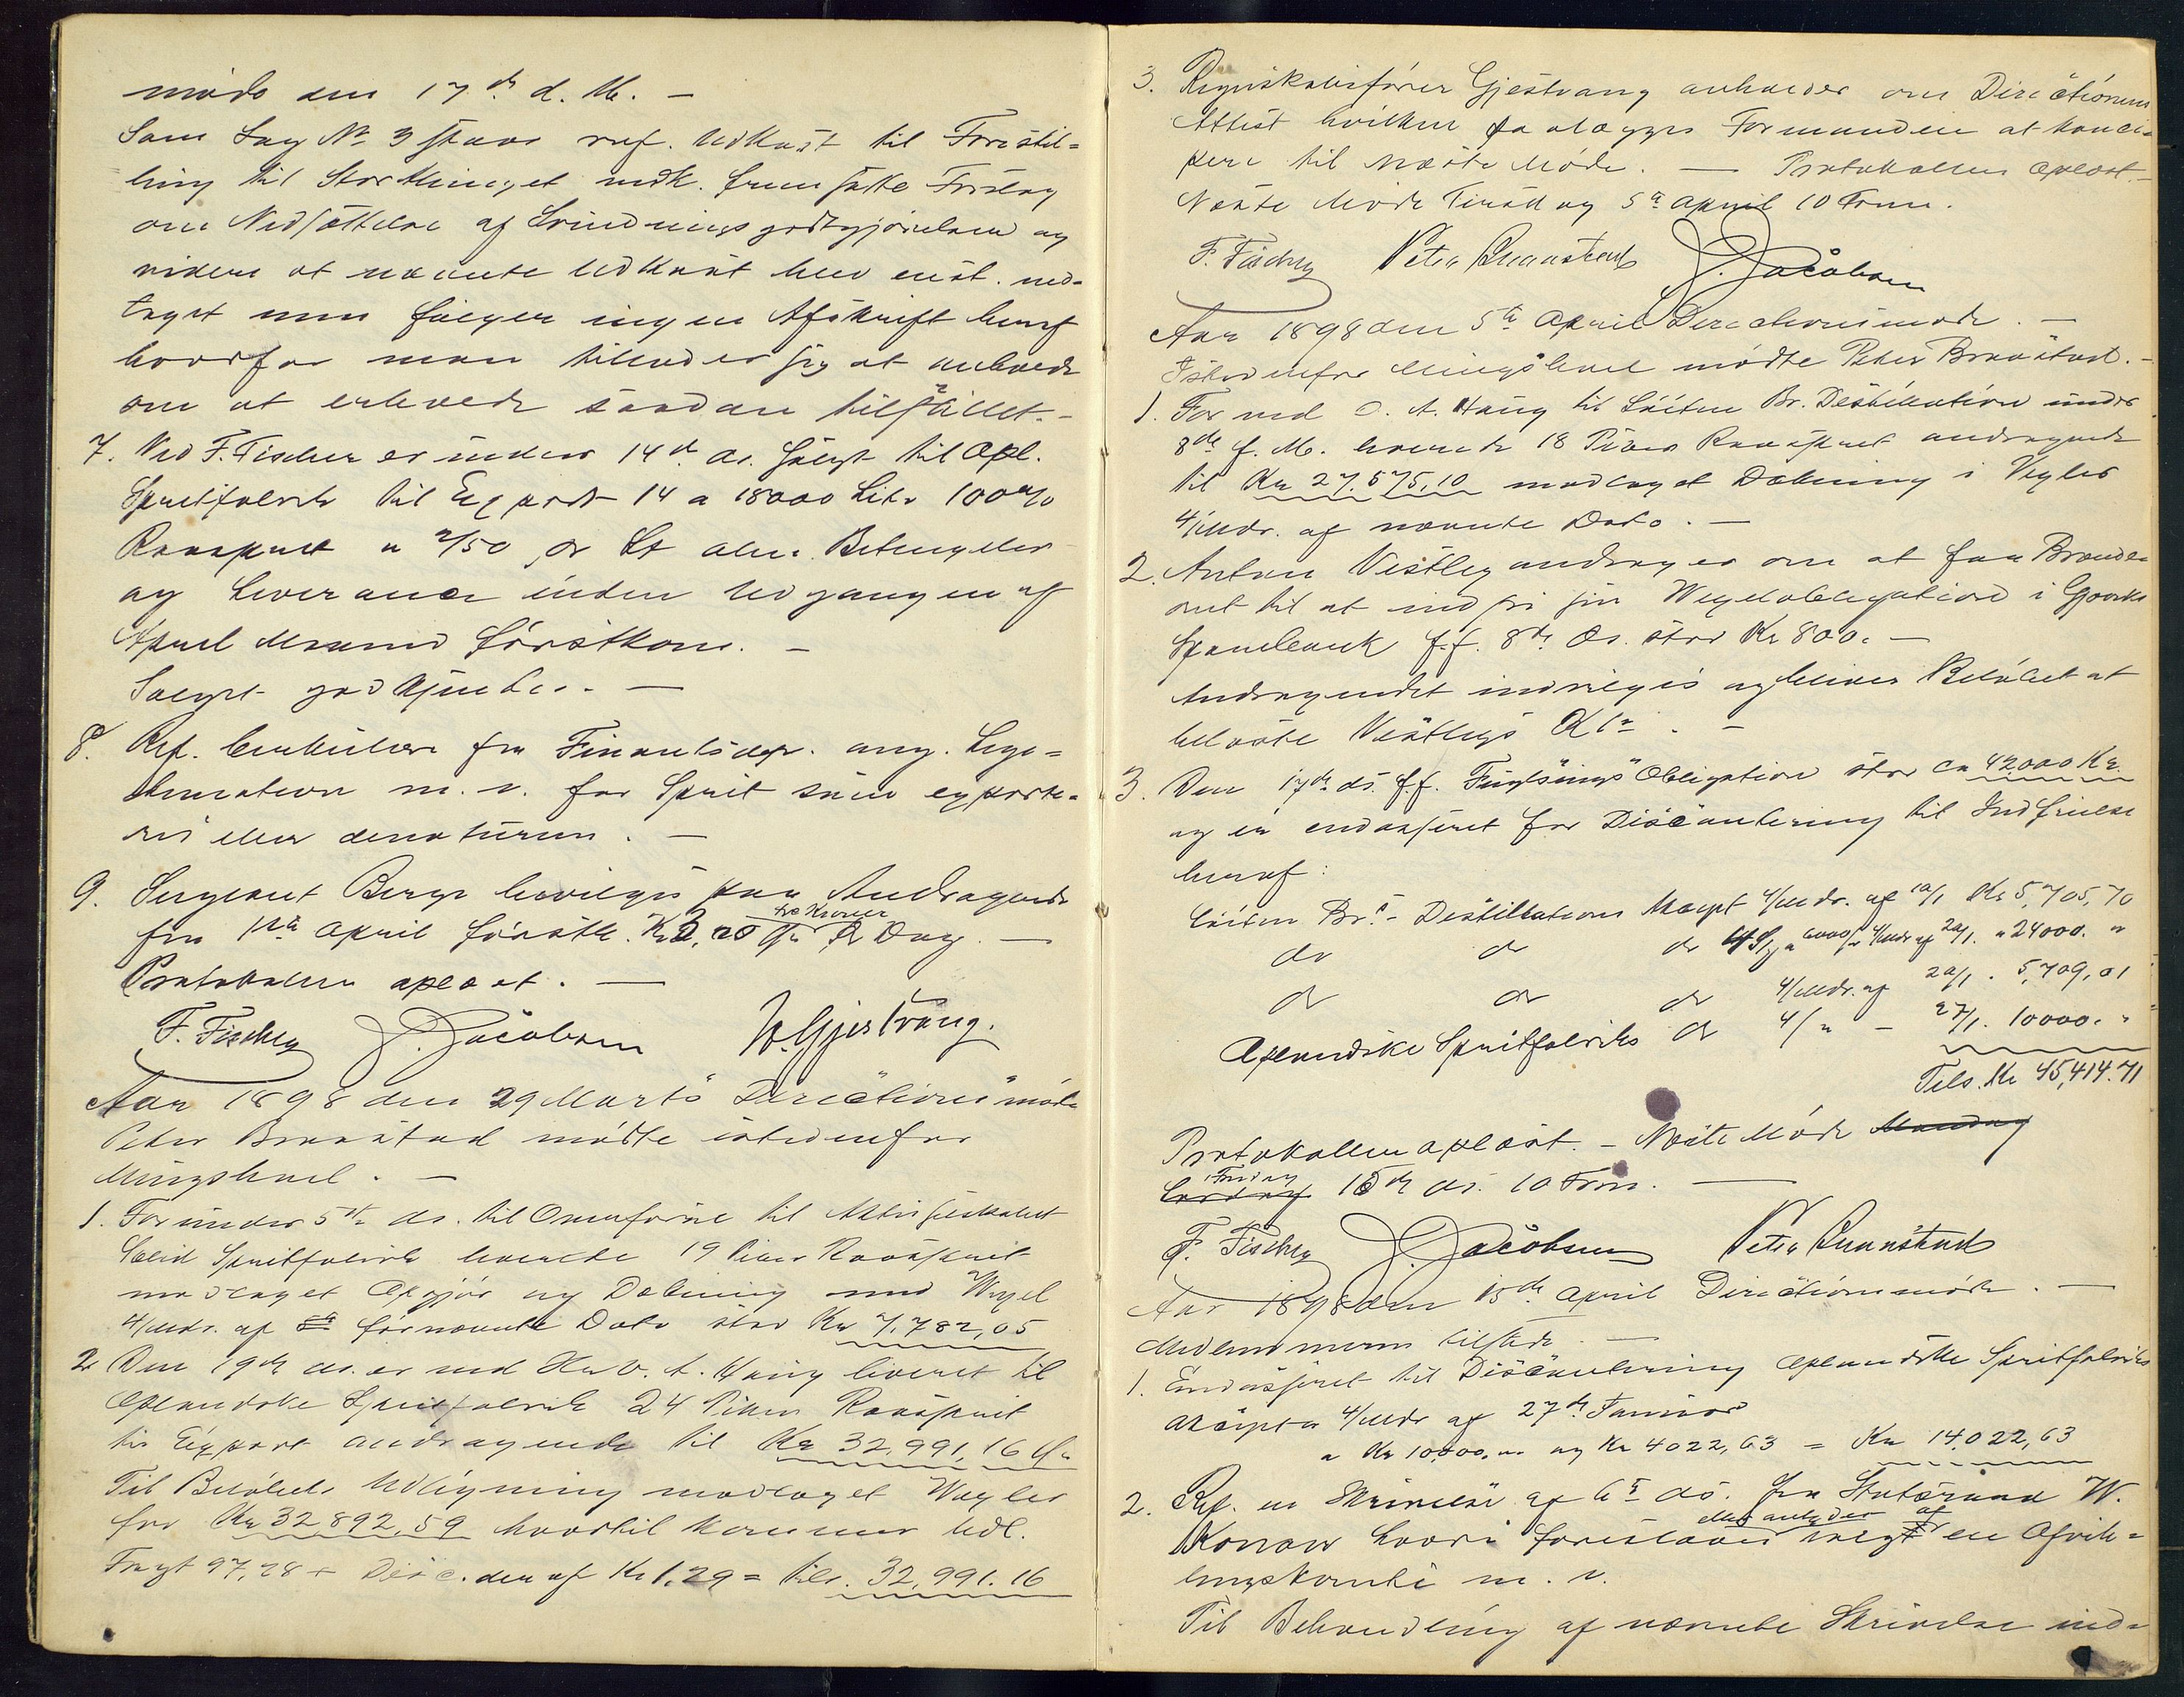 møde den 17de d. M. –
Som Sag No 3 staar ref. Udkast til Forestil=
ling til Storthinget vedk. fremsatte Forslag
om Nedsættelse af Svindningsgodtgjørelsen og
videre at nævnte Udkast blev enst. ved=
taget men følger ingen Afskrift heraf
hvorfor man tillader sig at anholde
om at erholde saadan tilstillet. –
7. Ved F. Fischer er under 14de ds. solgt til Opl.
Spritfabrik til Export 14 a 18000 Litr 100%
Raasprit a /50 pr Lt alm. Betingelser
og Leverance inden Udgangen af
April Maaned førstkom. –
Salget godkjendes. –
8. Ref. Cirkulære fra Finantsdep. ang. Legi=
timation m. v. for Sprit som exporte=
res eller denatureres. –
9. Sergeant Berge bevilges paa Andragende
fra 1ste April førstk. Kr 2,00 to Kroner pr Dag. –
Protokollen oplæst. –
F. Fischer J. Jacobsen W. Gjestvang.
Aar 1898 den 29 Marts Directionsmøde
Peter Braastad mødte istedenfor
Mengshoel. –
1. For under 5te ds. til Aktieselskabet
Spritfabrik leverede 19 Piber Raasprit
modtaget Opgjør og Dækning med Vexel
4/Mdr. af førnævnte Dato stor Kr 7.782,05
2. Den 19de ds. er ved O. A. Haug leveret til
Oplandske Spritfabrik 24 Piber Raasprit
til Export andragende til Kr 32,991,16
Til Beløbets Udligning modtaget Vexler
for Kr 32892,59 hvortil kommer Udl.
Fragt 97,28 + Disc. den af Kr 1,29 = tils. 32,991.16
3. Regnskabsfører Gjestvang anholder om Directionens
Attest hvilken paalægges Formanden at konci=
pere til næste Møde. – Protokollen oplæst. –
Næste Møde Tirsdag 5te April 10 Form.
F. Fischer Peter Braastad J. Jacobsen
Aar 1898 den 5te April Directionsmøde. –
Istedenfor Mengshoel mødte Peter Braastad. –
1. For ved O. A. Haug til Løiten Br. Destillation under
8de f. M. leverede 18 Piber Raasprit andragende
til Kr 27.575,10 modtaget Dækning i Vexler
4/Mdr. af nævnte Dato. –
2. Anton Vestley andrager om at faa Brænde=
riet til at indfri sin Vexelobligation i
Sparebank f.f. 8de ds. stor Kr 800. –
Andragendet indvilges og bliver Beløbet at
belaste Vestleys Kto. –
3. Den 17de ds. f.f. "Fuglsengs" Obligation stor ca 42000 Kr.
og er endosseret for Discontering til Indfrielse
heraf:
Løiten Br.s Destillations Akcept 4/Mdr. af 10/1 Kr 5,705,70
do do do 4 St. a 6000 Kr 4/Mdr af 20/1. " 24000. "
do do do 4/Mdr. af 20/1. 5,709,01
Oplandske Spritfabriks do 4/ " – 27/1. 10000. "
Tils. Kr 45,414.71
Protokollen oplæst. – Næste Møde Mandag
Lørdag Fredag 15de ds. 10 Form. –
F. Fischer J. Jacobsen Peter Braastad
Aar 1898 den 15de April Directionsmøde. –
Medlemmerne tilstede. –
1. Endosseret til Discontering Oplandske Spritfabriks
Akcepter 4/Mdr af 27de Januar
a Kr 10,000. " og Kr 4022,63 = Kr 14,022,63
2. Ref. en Skrivelse af 6te ds. fra Statsraad W.
Konow hvori foreslaaes eller antydes valgt af en Afvik=
lingskomite m. v.
Til Behandling af nævnte Skrivelse ind=